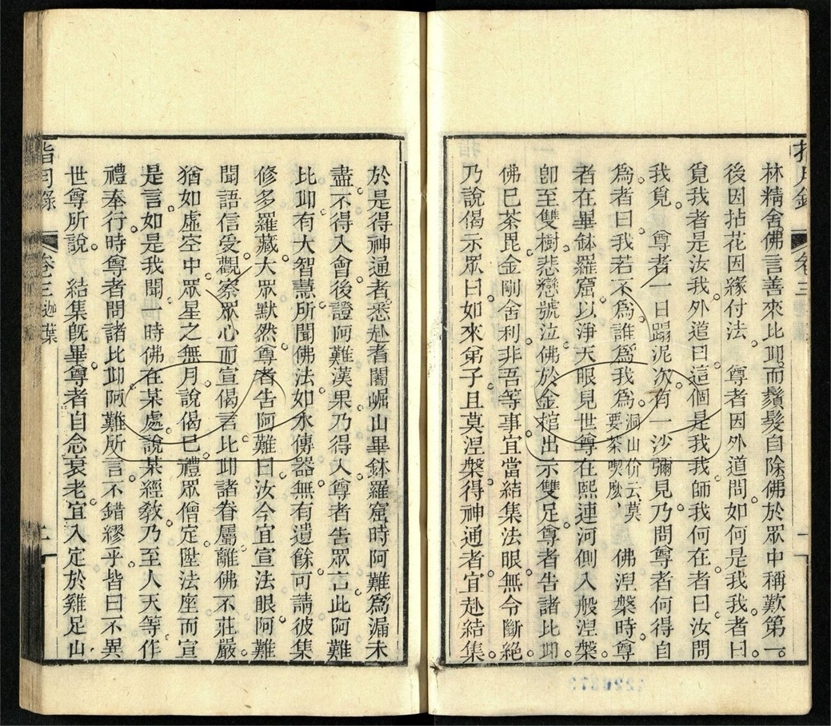 林精舍佛言善來比丘而鬚髮自除佛於眾中稱歎第一
後因拈花因緣付法　尊者因外道問如何是我我者曰
覓我者是汝我外道曰這個是我我師我何在者曰汝問
我覓　尊者一日蹋泥次有一沙彌見乃問尊者何得自
為者曰我若不為誰為我為洞山价云莫要茶喫麼　佛涅槃時尊
者在畢鉢羅窟以淨天眼見世尊在熙連河側入般涅槃
卽至雙樹悲戀號泣佛於金棺出示雙足尊者告諸比丘
佛已茶毘金剛舍利非吾等事宜當結集法眼無令斷絕
乃說偈示眾曰如來弟子且莫涅槃得神通者宜赴結集
指月錄　卷三　一
於是得神通者悉赴耆闍崛山畢鉢羅窟時阿難為漏未
盡不得入會後證阿難漢果乃得入尊者告眾言此阿難
比丘有大智慧所聞佛法如水傳器無有遺餘可請彼集
修多羅藏大眾默然尊者告阿難曰汝今宜宣法眼阿難
聞語信受觀察眾心而宣偈言比丘諸眷屬離佛不莊嚴
猶如虛空中眾星之無月說偈已禮眾僧定陞法座而宣
是言如是我聞一時佛在某處說某經教乃至人天等作
禮奉行時尊者問諸比丘阿難所言不錯繆乎皆曰不異
世尊所說　結集旣畢尊者自念衰老宜入定於雞足山
指月錄　卷三　迦葉　二